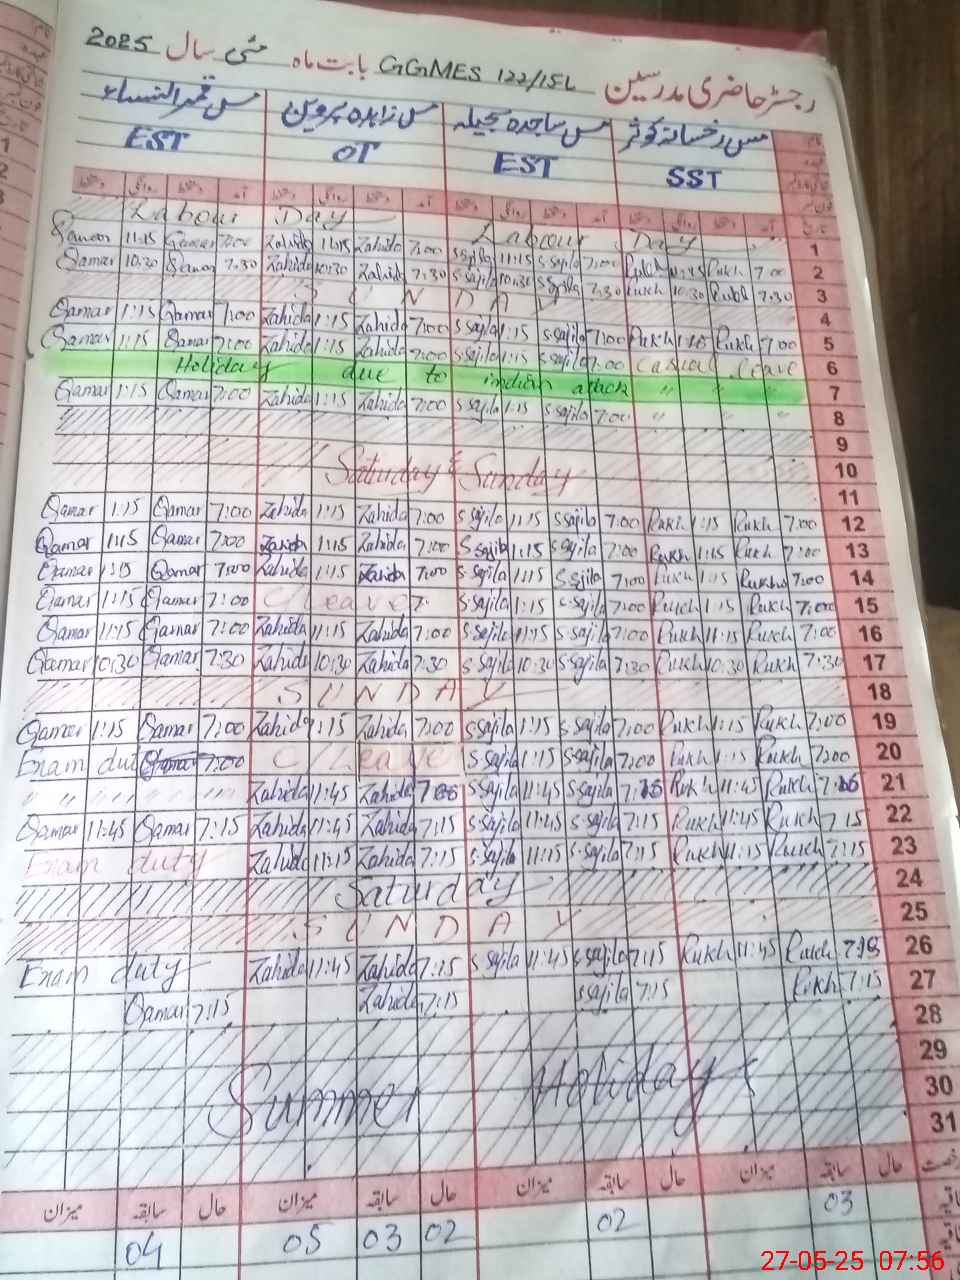 رجسٹر حاضری مدرسین GGMES 122/15L بابت ماہ مئی سال 2025
مس رخسانہ کوثر مس ساجدہ جمیلہ مس زاہدہ پروین مس قمر النساء
SST EST OT EST
Labour Day Labour Day 1
Qamar 11:15 Qamar 7:00 Zahida 11:15 Zahida 7:00 S Sajila 11:15 S Sajila 7:00 Rukh 11:15 Rukh 7:00 2
Qamar 10:30 Qamar 7:30 Zahida 10:30 Zahida 7:30 S Sajila 10:30 S Sajila 7:30 Rukh 10:30 Rukh 7:30 3
SUNDAY 4
Qamar 1:15 Qamar 7:00 Zahida 1:15 Zahida 7:00 S Sajila 1:15 S Sajila 7:00 Rukh 1:15 Rukh 7:00 5
Qamar 1:15 Qamar 7:00 Zahida 1:15 Zahida 7:00 S Sajila 1:15 S Sajila 7:00 Casual leave 6
Holiday due to indian attack " " " 7
Qamar 1:15 Qamar 7:00 Zahida 1:15 Zahida 7:00 S Sajila 1:15 S Sajila 7:00 " " " 8
9
Saturday & Sunday 10
11
Qamar 1:15 Qamar 7:00 Zahida 1:15 Zahida 7:00 S Sajila 11:15 S Sajila 7:00 Rukh 1:15 Rukh 7:00 12
Qamar 1:15 Qamar 7:00 Zahida 1:15 Zahida 7:00 S Sajila 1:15 S Sajila 7:00 Rukh 1:15 Rukh 7:00 13
Qamar 1:15 Qamar 7:00 Zahida 1:15 Zahida 7:00 S Sajila 1:15 S Sajila 7:00 Rukh 1:15 Rukh 7:00 14
Qamar 1:15 Qamar 7:00 C/Leave S Sajila 1:15 S Sajila 7:00 Rukh 1:15 Rukh 7:00 15
Qamar 11:15 Qamar 7:00 Zahida 11:15 Zahida 7:00 S Sajila 11:15 S Sajila 7:00 Rukh 11:15 Rukh 7:00 16
Qamar 10:30 Qamar 7:30 Zahida 10:30 Zahida 7:30 S Sajila 10:30 S Sajila 7:30 Rukh 10:30 Rukh 7:30 17
SUNDAY 18
Qamar 1:15 Qamar 7:00 Zahida 1:15 Zahida 7:00 S Sajila 1:15 S Sajila 7:00 Rukh 1:15 Rukh 7:00 19
Exam duty 7:00 C/Leave S Sajila 1:15 S Sajila 7:00 Rukh 1:15 Rukh 7:00 20
" " " " Zahida 11:45 Zahida S Sajila 11:45 S Sajila 7:15 Rukh 11:45 Rukh 21
Qamar 11:45 Qamar 7:15 Zahida 11:45 Zahida 7:15 S Sajila 11:45 S Sajila 7:15 Rukh 11:45 Rukh 7:15 22
Exam duty Zahida 11:15 Zahida 7:15 S Sajila 11:15 S Sajila 7:15 Rukh 11:15 Rukh 7:15 23
Saturday 24
SUNDAY 25
Exam duty Zahida 11:45 Zahida 7:15 S Sajila 11:45 S Sajila 7:15 Rukh 11:45 Rukh 7:15 26
Qamar 7:15 Zahida 7:15 S Sajila 7:15 Rukh 7:15 27
28
29
Summer Holidays 30
31
میزان سابقہ حال میزان سابقہ حال میزان سابقہ حال میزان سابقہ حال
04 05 03 02 02 03
27-05-25 07:56